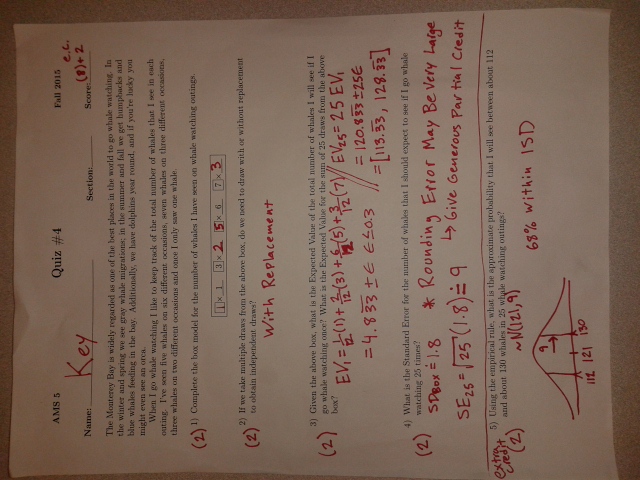 AMS 5
Quiz #4
Fall 2015
e.c.
Name: Key
Section:
Score: (8)+2
The Monterey Bay is widely regarded as one of the best places in the world to go whale watching. In
the winter and spring we see gray whale migrations; in the summer and fall we get humpbacks and
blue whales feeding in the bay. Additionally, we have dolphins year round, and if you're lucky you
might even see an orca.
When I go whale watching I like to keep track of the total number of whales that I see in each
outing. I've seen five whales on six different occasions, seven whales on three different occasions,
three whales on two different occasions and once I only saw one whale.
(2) 1) Complete the box model for the number of whales I have seen on whale watching outings.
1 × 1 3 × 2 5 × 6 7 × 3
2) If we take multiple draws from the above box, do we need to draw with or without replacement
(2) to obtain independent draws?
With Replacement
3) Given the above box, what is the Expected Value of the total number of whales I will see if I
go whale watching once? What is the Expected Value for the sum of 25 draws from the above
box?
(2) EV₁ = 1/12 (1) + 2/12 (3) + 6/12 (5) + 3/12 (7) // EV₂₅ = 25 EV₁
= 4.833 ± ε ε ≤ 0.3 // = 120.833 ± 25ε
= [113.33, 128.33]
4) What is the Standard Error for the number of whales that I should expect to see if I go whale
watching 25 times?
(2) SD Box ≐ 1.8 * Rounding Error May Be Very Large
SE₂₅ = √25 (1.8) ≐ 9 ↳ Give Generous Partial Credit
5) Using the empirical rule, what is the approximate probability that I will see between about 112
and about 130 whales in 25 whale watching outings?
extra
credit (2)
~N(121, 9)
9
68% within 1SD
112 121 130